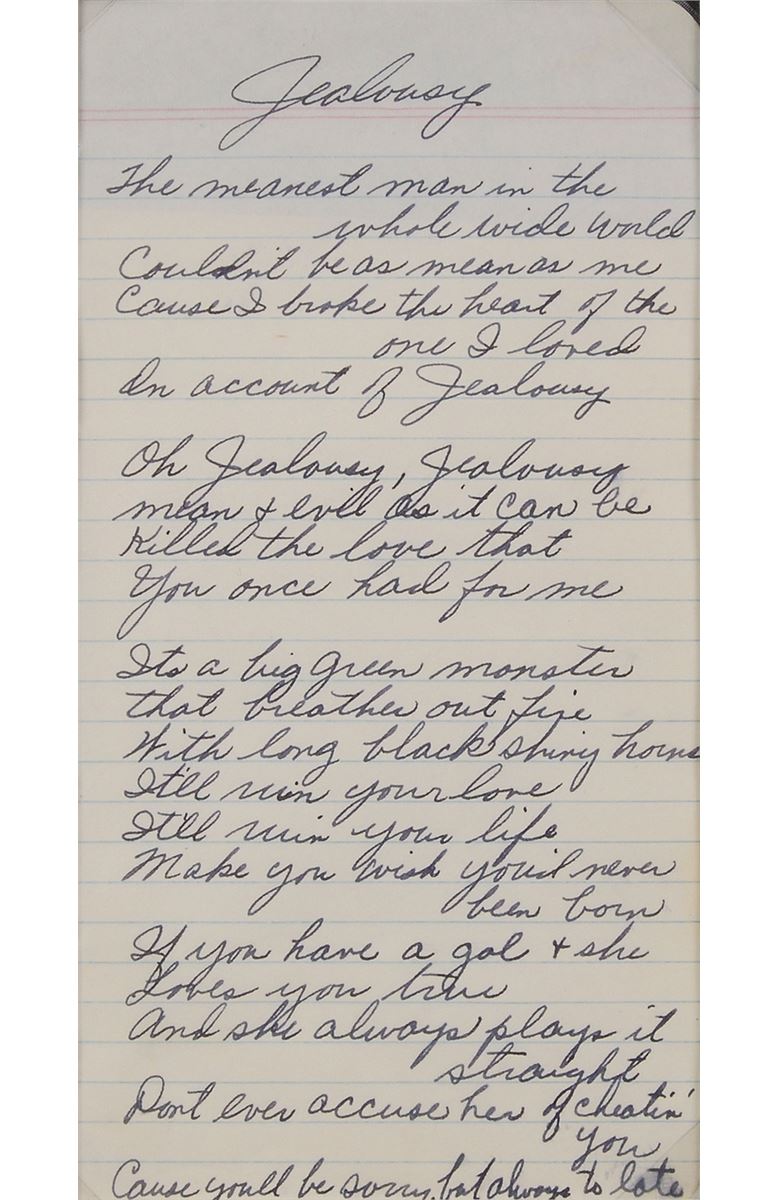 Jealousy
The meanest man in the
whole wide world
Couldn't be as mean as me
Cause I broke the heart of the
one I loved
On account of Jealousy
Oh Jealousy, Jealousy
mean & evil as it can be
Killed the love that
You once had for me
Its a big green monster
that breathes out fire
With long black shiny horns
It'll ruin your love
It'll ruin your life
Make you wish you'd never
been born
If you have a gal & she
Loves you true
And she always plays it
straight
Dont ever accuse her of cheatin'
you
Cause you'll be sorry, but always to late